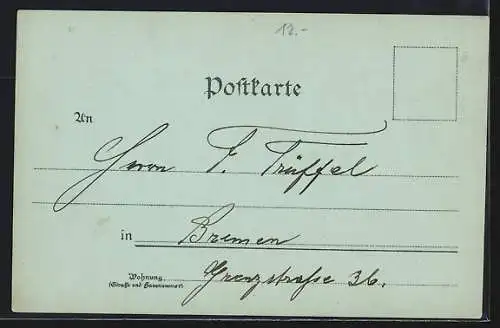 12.-
Postkarte
An
Herrn F. Trüffel
in Bremen
Wohnung Grenzstraße 36.
(Straße und Hausnummer)